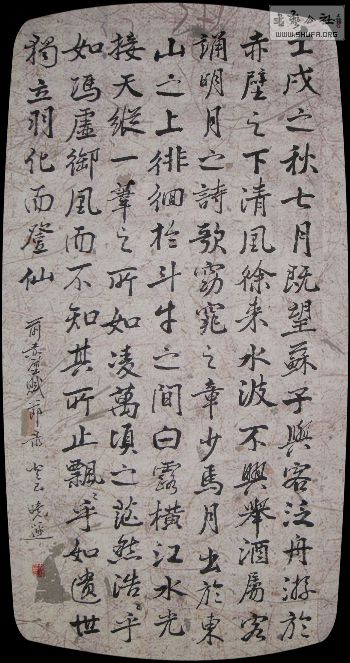 書藝公社
WWW.SHUFA.ORG
壬戌之秋七月既望蘇子與客泛舟游於
赤壁之下清風徐来水波不興舉酒屬客
誦明月之詩歌窈窕之章少焉月出於東
山之上徘徊於斗牛之間白露橫江水光
接天縱一葦之所如凌萬頃之茫然浩〻乎
如馮虛御風而不知其所止飄〻乎如遺世
獨立羽化而登仙
前赤壁賦節录 癸巳